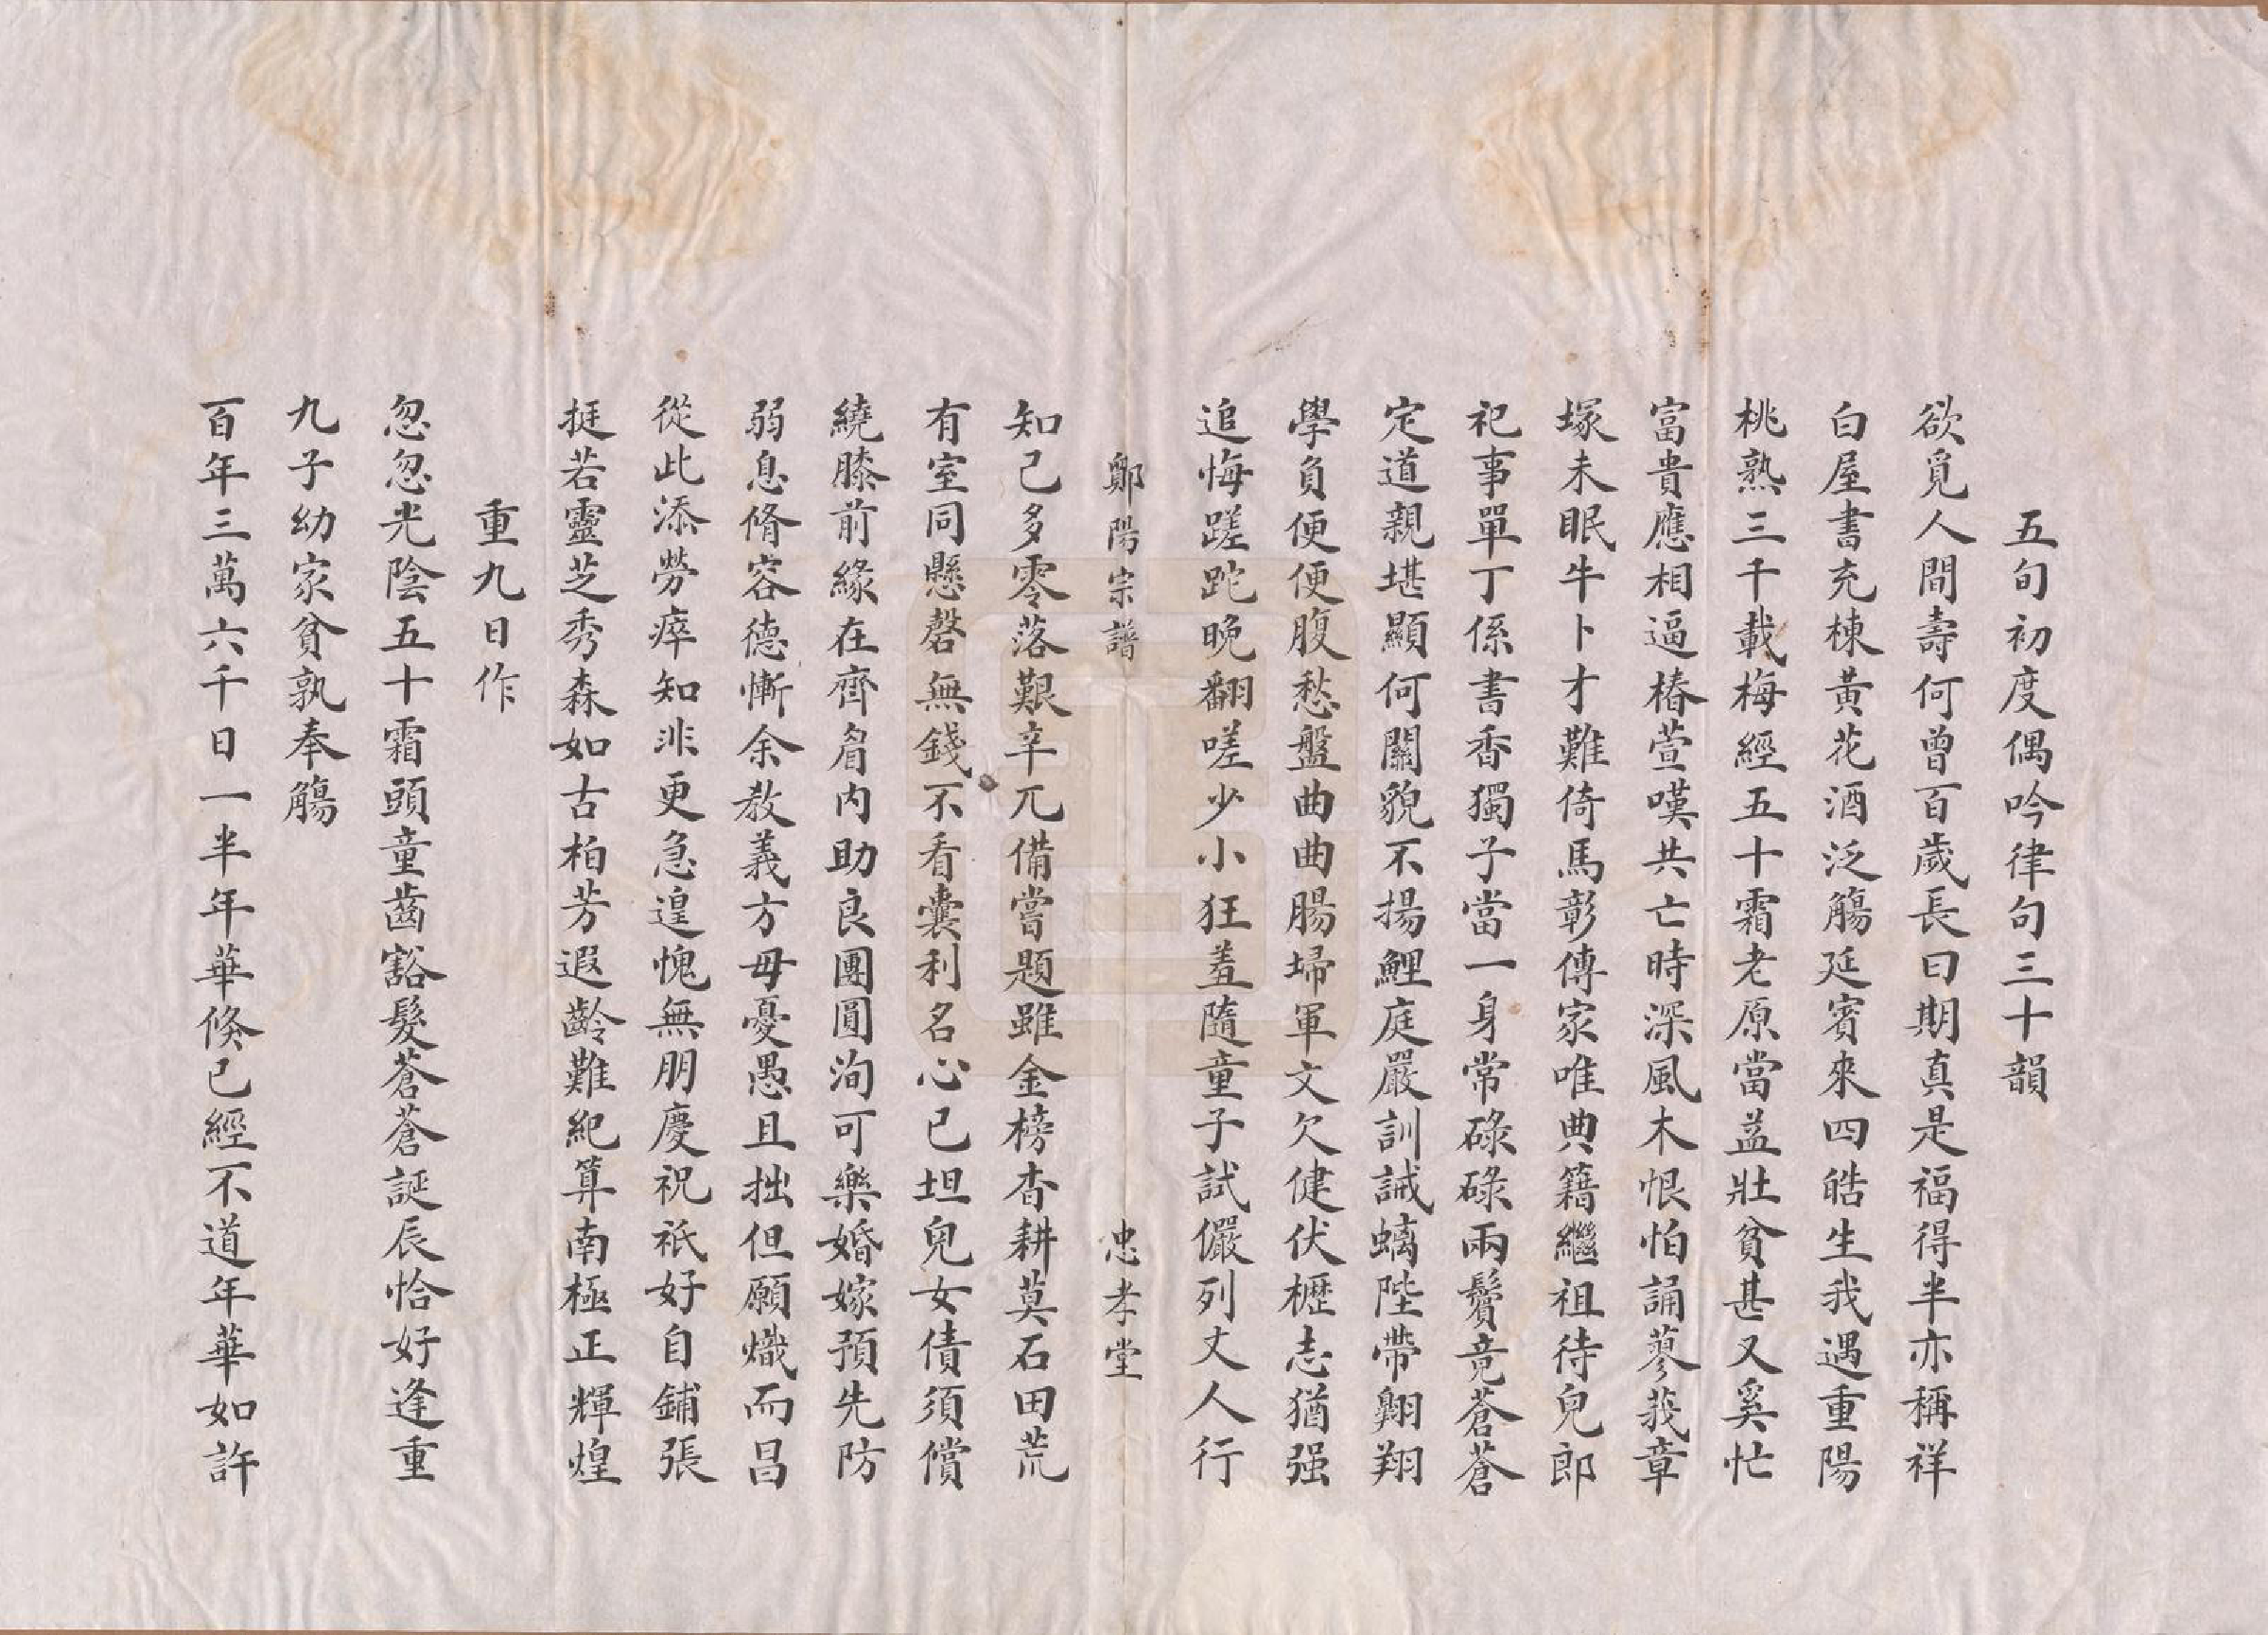 五旬初度偶吟律句三十韻
欲覓人間壽何曾百歲長曰期真是福得半亦稱祥
白屋書充棟黃花酒泛觴延賓來四皓生我遇重陽
桃熟三千載梅經五十霜老原當益壯貧甚又奚忙
富貴應相逼椿萱嘆共亡時深風木恨怕誦蓼莪章
塚未眠牛卜才難倚馬彰傳家唯典籍繼祖待兒郎
祀事單丁係書香獨子當一身常碌碌兩鬢竟蒼蒼
定道親堪顯何關貌不揚鯉庭嚴訓誡螭陛帶翺翔
學負便便腹愁盤曲曲腸埽軍文欠健伏櫪志猶强
追悔蹉跎晚翻嗟少小狂羞隨童子試儼列丈人行
鄭陽宗譜 忠孝堂
知己多零落艱辛兀備嘗題雖金榜杳耕莫石田荒
有室同懸磬無錢不看囊利名心已坦兒女債須償
繞膝前緣在齊眉內助良團圓洵可樂婚嫁預先防
弱息脩容德慚余教義方毋憂愚且拙但願熾而昌
從此添勞瘁知非更急遑愧無朋慶祝祇好自鋪張
挺若靈芝秀森如古柏芳遐齡難紀算南極正輝煌
重九日作
忽忽光陰五十霜頭童齒豁髮蒼蒼誕辰恰好逢重
九子幼家貧孰奉觴
百年三萬六千日一半年華倏已經不道年華如許